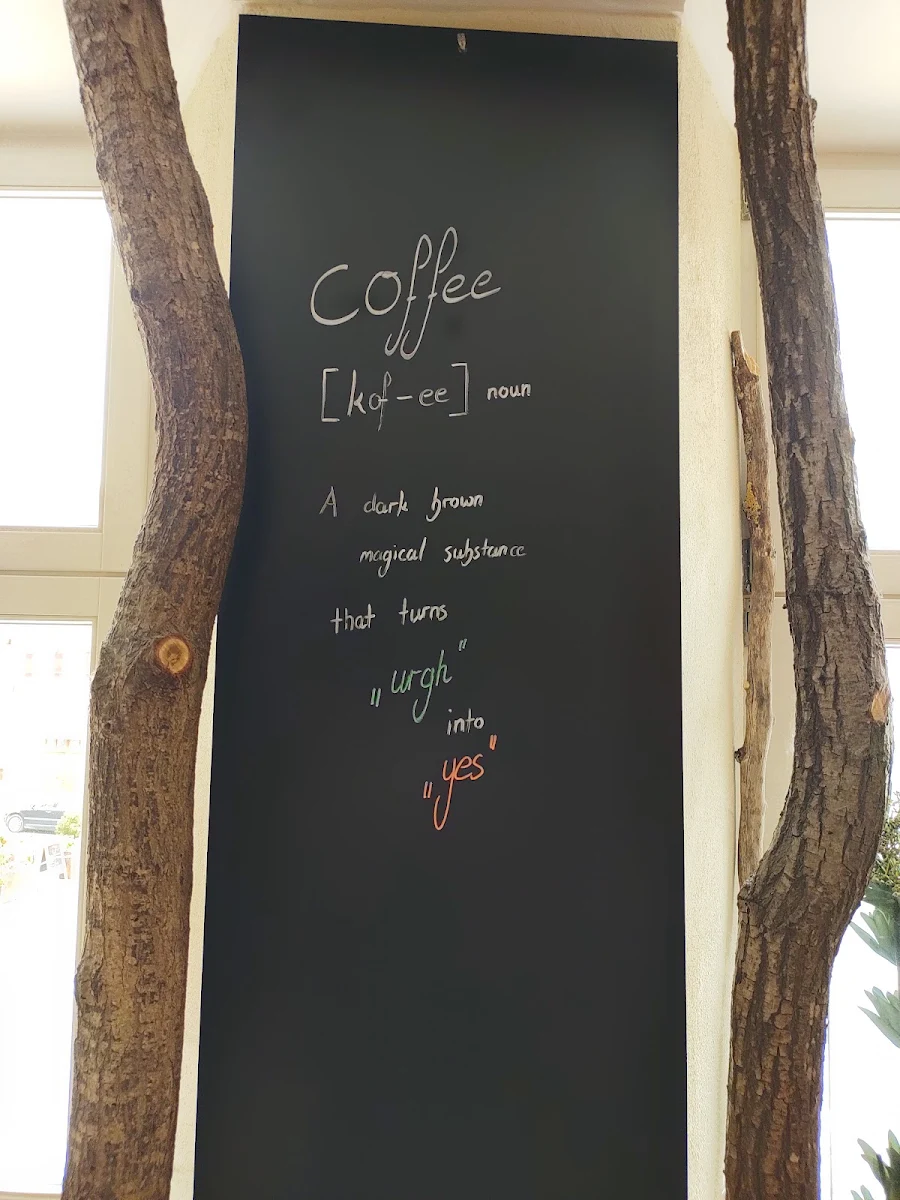 Coffee
[kof-ee] noun
A dark brown
magical substance
that turns
„urgh"
into
„yes"